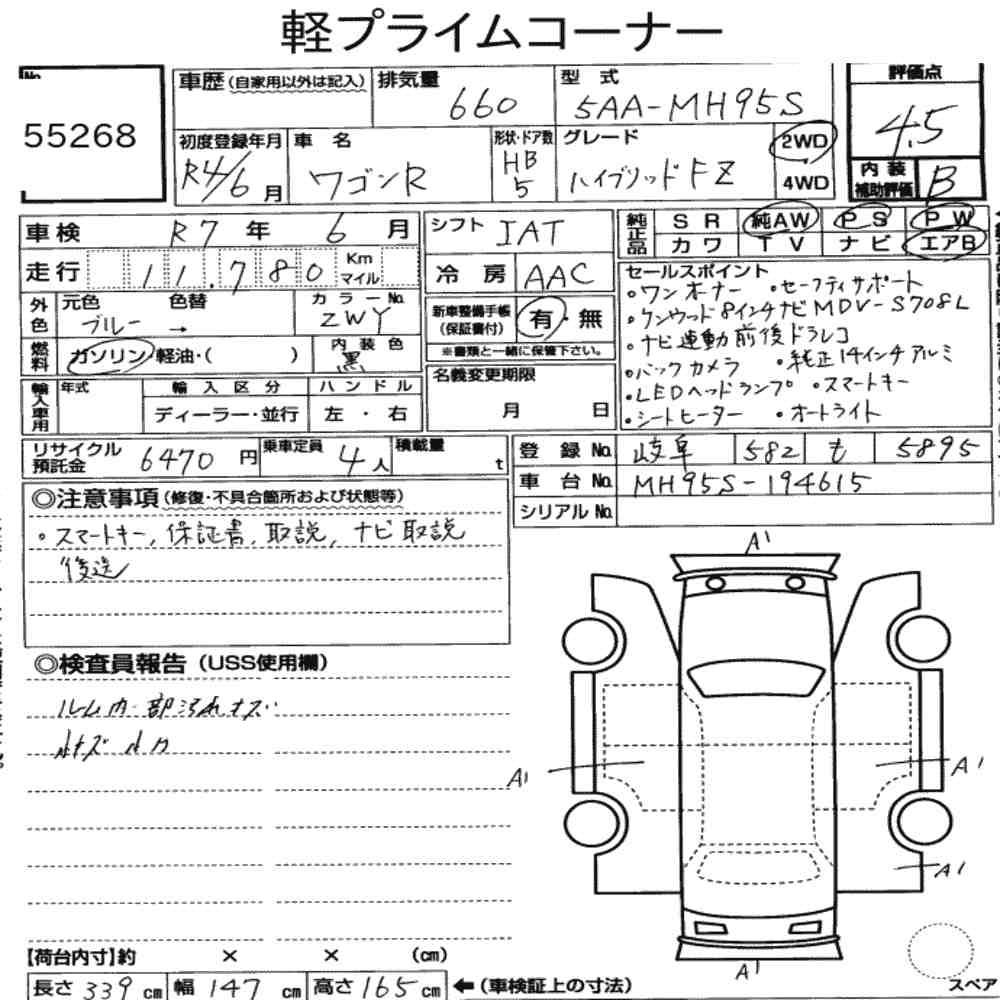 軽プライムコーナー
No.
55268
車歴(自家用以外は記入)
排気量
660
型 式
5AA-MH95S
評価点
4.5
初度登録年月
R4/6月
車 名
ワゴンR
形状・ドア数
HB
5
グレード
ハイブリッドFZ
2WD
4WD
内 装
補助評価
B
車検 R7年 6月
走行 11,780 Km
マイル
外色
元色
ブルー
色替
→
カラーNo.
ZWY
燃料
ガソリン・軽油・( )
内装色
黒
輸入車用
年式
輸入区分
ディーラー・並行
ハンドル
左・右
シフト IAT
冷房 AAC
新車整備手帳
(保証書付)
有・無
※書類と一緒に保管下さい。
名義変更期限
月 日
純正品
SR 純AW PS PW
カワ TV ナビ エアB
セールスポイント
・ワンオーナー ・セーフティサポート
・ケンウッド8インチナビMDV-S708L
・ナビ連動前後ドラレコ
・バックカメラ ・純正14インチアルミ
・LEDヘッドランプ ・スマートキー
・シートヒーター ・オートライト
リサイクル
預託金
6470円
乗車定員
4人
積載量
t
登録No. 岐阜 582 も 5895
車台No. MH95S-194615
シリアルNo.
◎注意事項(修復・不具合箇所および状態等)
・スマートキー, 保証書, 取説, ナビ取説
後送
◎検査員報告(USS使用欄)
ルーム内一部汚れキズ
小キズ 小凹
A1
A1
A1
A1
A1
【荷台内寸】約 × × (cm)
長さ 339cm 幅 147cm 高さ 165cm ←(車検証上の寸法)
スペア